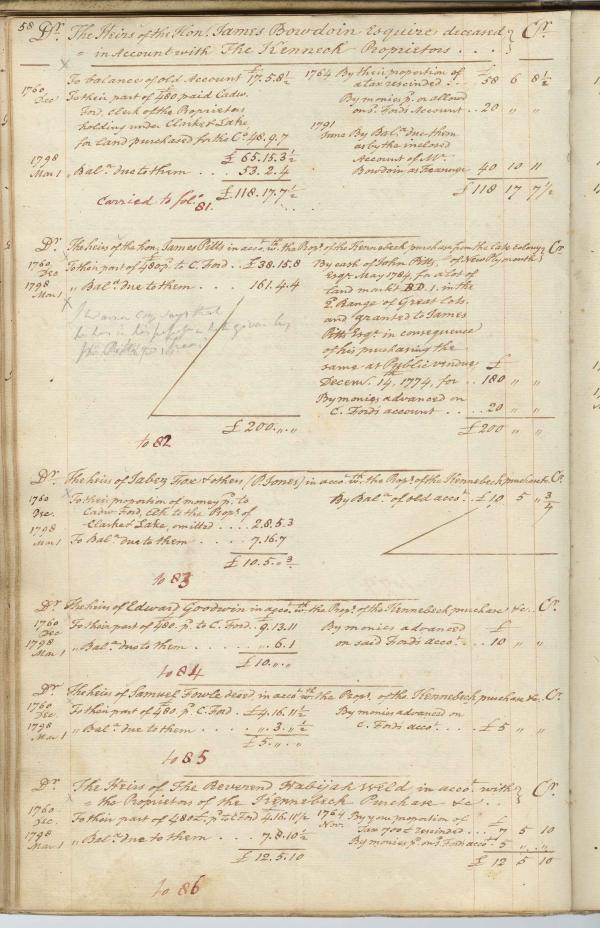 58 Dr. The Heirs of the Hon. James Bowdoin Esquire deceased Cr.
in Account with The Kennebeck Proprietors . . .
To balance of old Account £17.5.8½
1760 Decr. To their part of £480 paid Cadw.
Ford, Clerk of the Proprietors
holding under Clarke & Lake
for land purchased for the Co. 48.9.7
£65.15.3½
1798 Mar 1 " Bal.ce due to them . . . 53.2.4
£118.17.7½
Carried to fol.o 81.
1764 By their proportion of
a tax rescinded . . £58 6 8½
By monies p. or allowed
on s. Fords Account . . 20 " "
1791 June By Bal.ce due them
as by the inclosed
Account of Mr.
Bowdoin as Treasurer 40 10 11
£118 17 7½
Dr. The heirs of the hon. James Pitts in acco.t w.th the Prop.s of the Kennebeck purchase from the late Colony of New Plymouth Cr.
1760 Dec To their part of £480 p. to C. Ford . . £38.15.8
1798 Mar 1 " Bal.ce due to them . . . 161.4.4
£200.".."
to 82
By cash of John Pitts,
Esq.r May 1784, for a lot of
land markt B.D. 1. in the
2. Range of Great Lots.
and granted to James
Pitts Esq.r in consequence
of his purchasing the
same at Public vendue £
Decem. 14, 1774, for . . 180 " "
By monies advanced on
C. Fords account . . . 20 " "
£200 " "
Dr. The heirs of Jabez Fox & others (P. Jones) in acco.t w.th the Prop.s of the Kennebeck purchase Cr.
1760 Dec. To their proportion of money p. to
Cadw. Ford, Clk to the Prop.s of
Clarke & Lake, omitted . . . 2.8.5.3
1798 Mar 1 To Bal.ce due to them . . . 7.16.7
£10.5." ¾
to 83
By Bal.ce of old acco.t . . £10 5 " ¾
Dr. The heirs of Edward Goodwin in acco.t w.th the Prop.s of the Kennebeck purchase &c. Cr.
1760 Dec To their part of 480. p. to C. Ford. £9.13.11
1798 Mar 1 " Bal.ce due to them . . . ".6.1
£10.".."
to 84
By monies advanced £
on said Fords acco.t . . 10 " "
Dr. The heirs of Samuel Fowle deced in acco.t w.th the Prop.s of the Kennebeck purchase &c. Cr.
1760 Dec. To their part of £480. p. C. Ford . £4.16.11½
1798 Mar 1 " Bal.ce due to them . . . ".3."½
£5.".."
to 85
By monies advanced on
C. Fords acco.t . . . £5 " "
Dr. The Heirs of The Reverend Habijah Weld in acco.t with Cr.
the Proprietors of the Kennebeck Purchase &c . .
1760 Dec. To their part of 480£. p. to C Ford 4.16.11½
1798 Mar 1 " Bal.ce due to them . . . 7.8.10½
£12.5.10
to 86
1764 Nov. By your proportion of £
Tax 700£ rescinded . . 7 5 10
By monies p. on s. Fords acco.t . 5 " "
£12 5 10